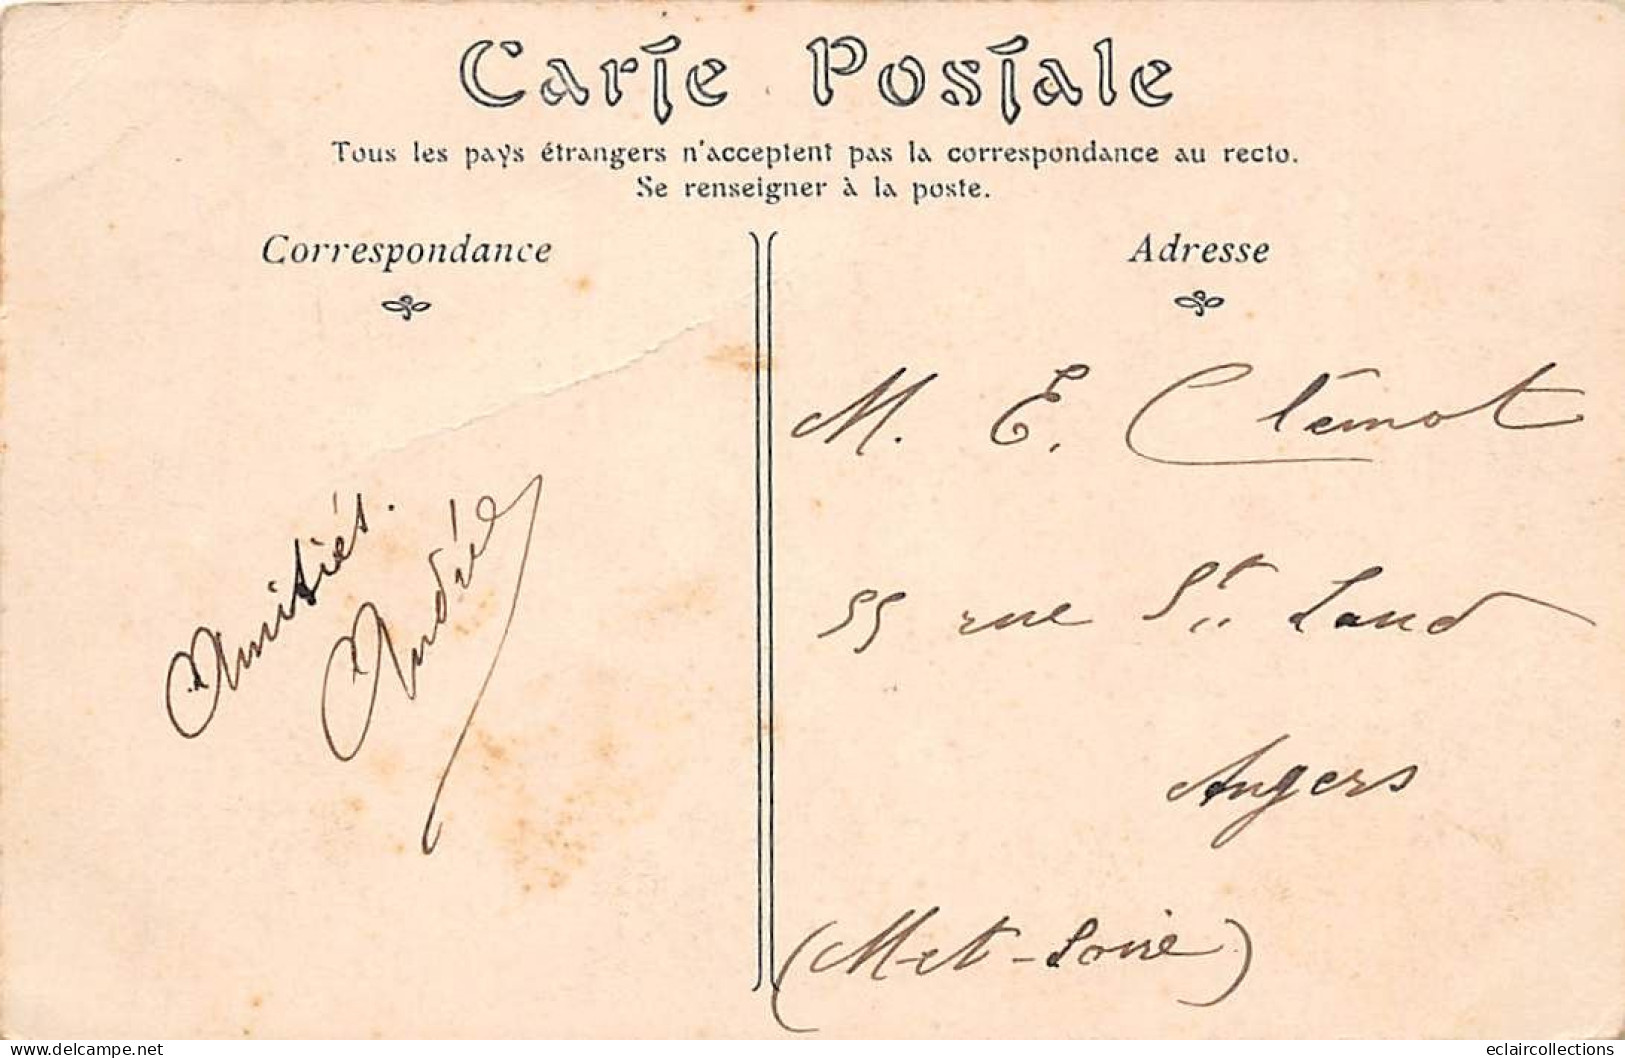 Carte Postale
Tous les pays étrangers n'acceptent pas la correspondance au recto.
Se renseigner à la poste.
Correspondance
Adresse
Amitiés.
André
M. E. Clémot
55 rue St. Laud
Angers
(M-et-Loire)
delcampe.net
eclaircollections